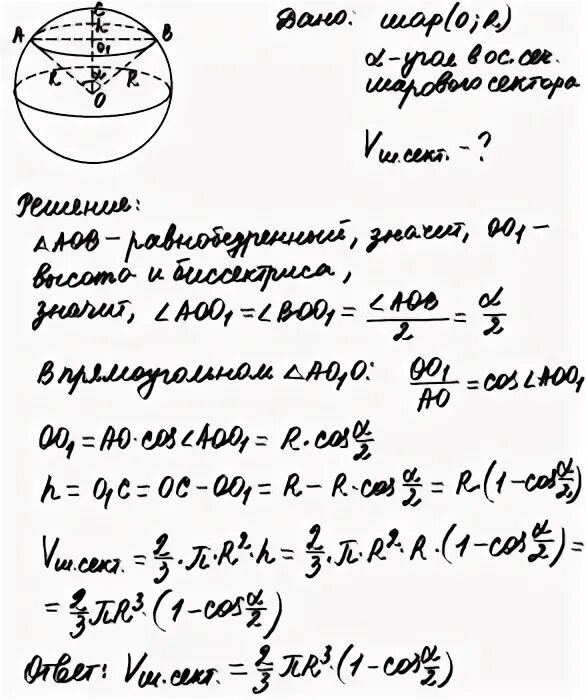 C
A
h
B
O₁
R
α
R
O
Дано: шар (O; R)
α-угол в ос. сеч.
шарового сектора
Vш.сект. - ?
Решение:
△AOB - равнобедренный, значит, OO₁ -
высота и биссектриса,
значит, ∠AOO₁ = ∠BOO₁ = ∠AOB/2 = α/2
В прямоугольном △AO₁O: OO₁/AO = cos∠AOO₁
OO₁ = AO·cos∠AOO₁ = R·cos α/2
h = O₁C = OC - OO₁ = R - R·cos α/2 = R(1-cos α/2)
Vш.сект. = 2/3·π·R²·h = 2/3·π·R²·R·(1-cos α/2) =
= 2/3 πR³·(1-cos α/2)
Ответ: Vш.сект. = 2/3 πR³·(1-cos α/2)